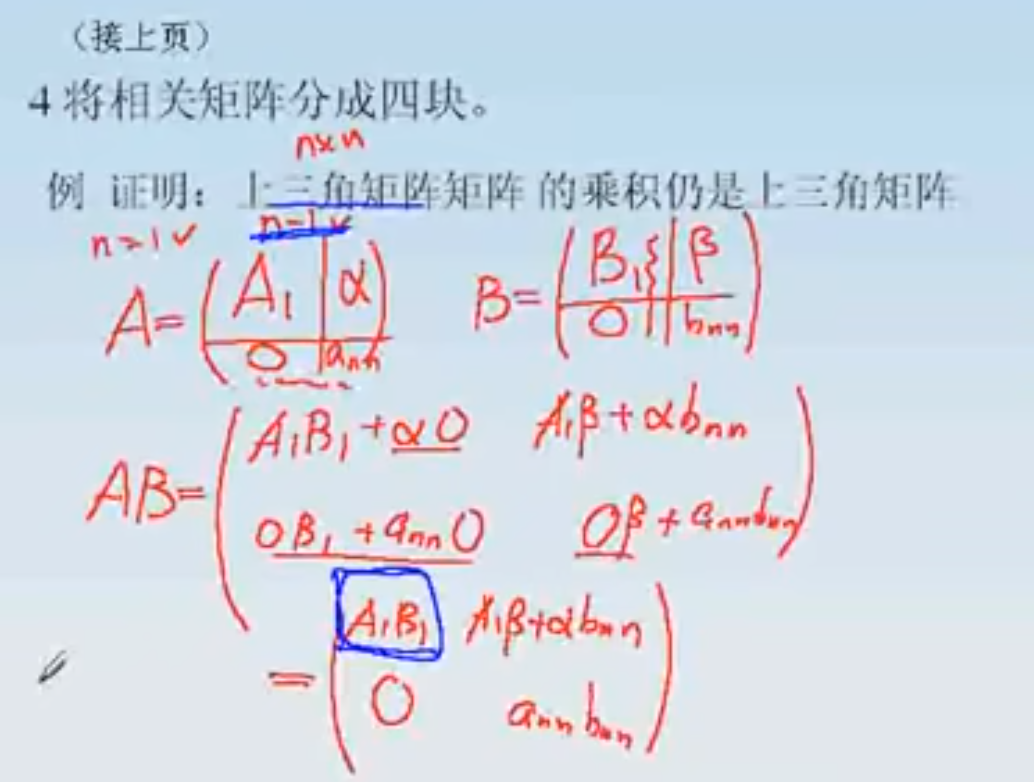 （接上页）
4 将相关矩阵分成四块。
n×n
例 证明：上三角矩阵矩阵 的乘积仍是上三角矩阵
n=1 ✓ n-1 ✓
A= ( A₁ | α ) B= ( B₁ | β )
( 0 | aₙₙ ) ( 0 | bₙₙ )
AB= ( A₁B₁+α0 A₁β+αbₙₙ )
( 0B₁+aₙₙ0 0β+aₙₙbₙₙ )
= ( A₁B₁ A₁β+αbₙₙ )
( 0 aₙₙbₙₙ )